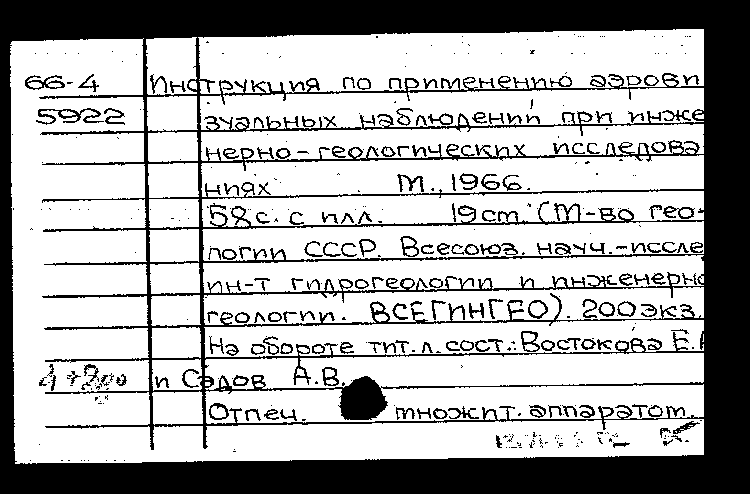 66-4 Инструкция по применению аэрови
5922 зуальных наблюдений при инже
нерно-геологических исследова
ниях М., 1966.
58с. с илл. 19 см. (М-во гео-
логии СССР. Всесоюз. науч.-иссле
ин-т гидрогеологии и инженерно
геологии. ВСЕГИНГЕО). 200 экз.
На обороте тит. л. сост.: Востокова Е.
и Садов А.В.
Отпеч. множит. аппаратом.